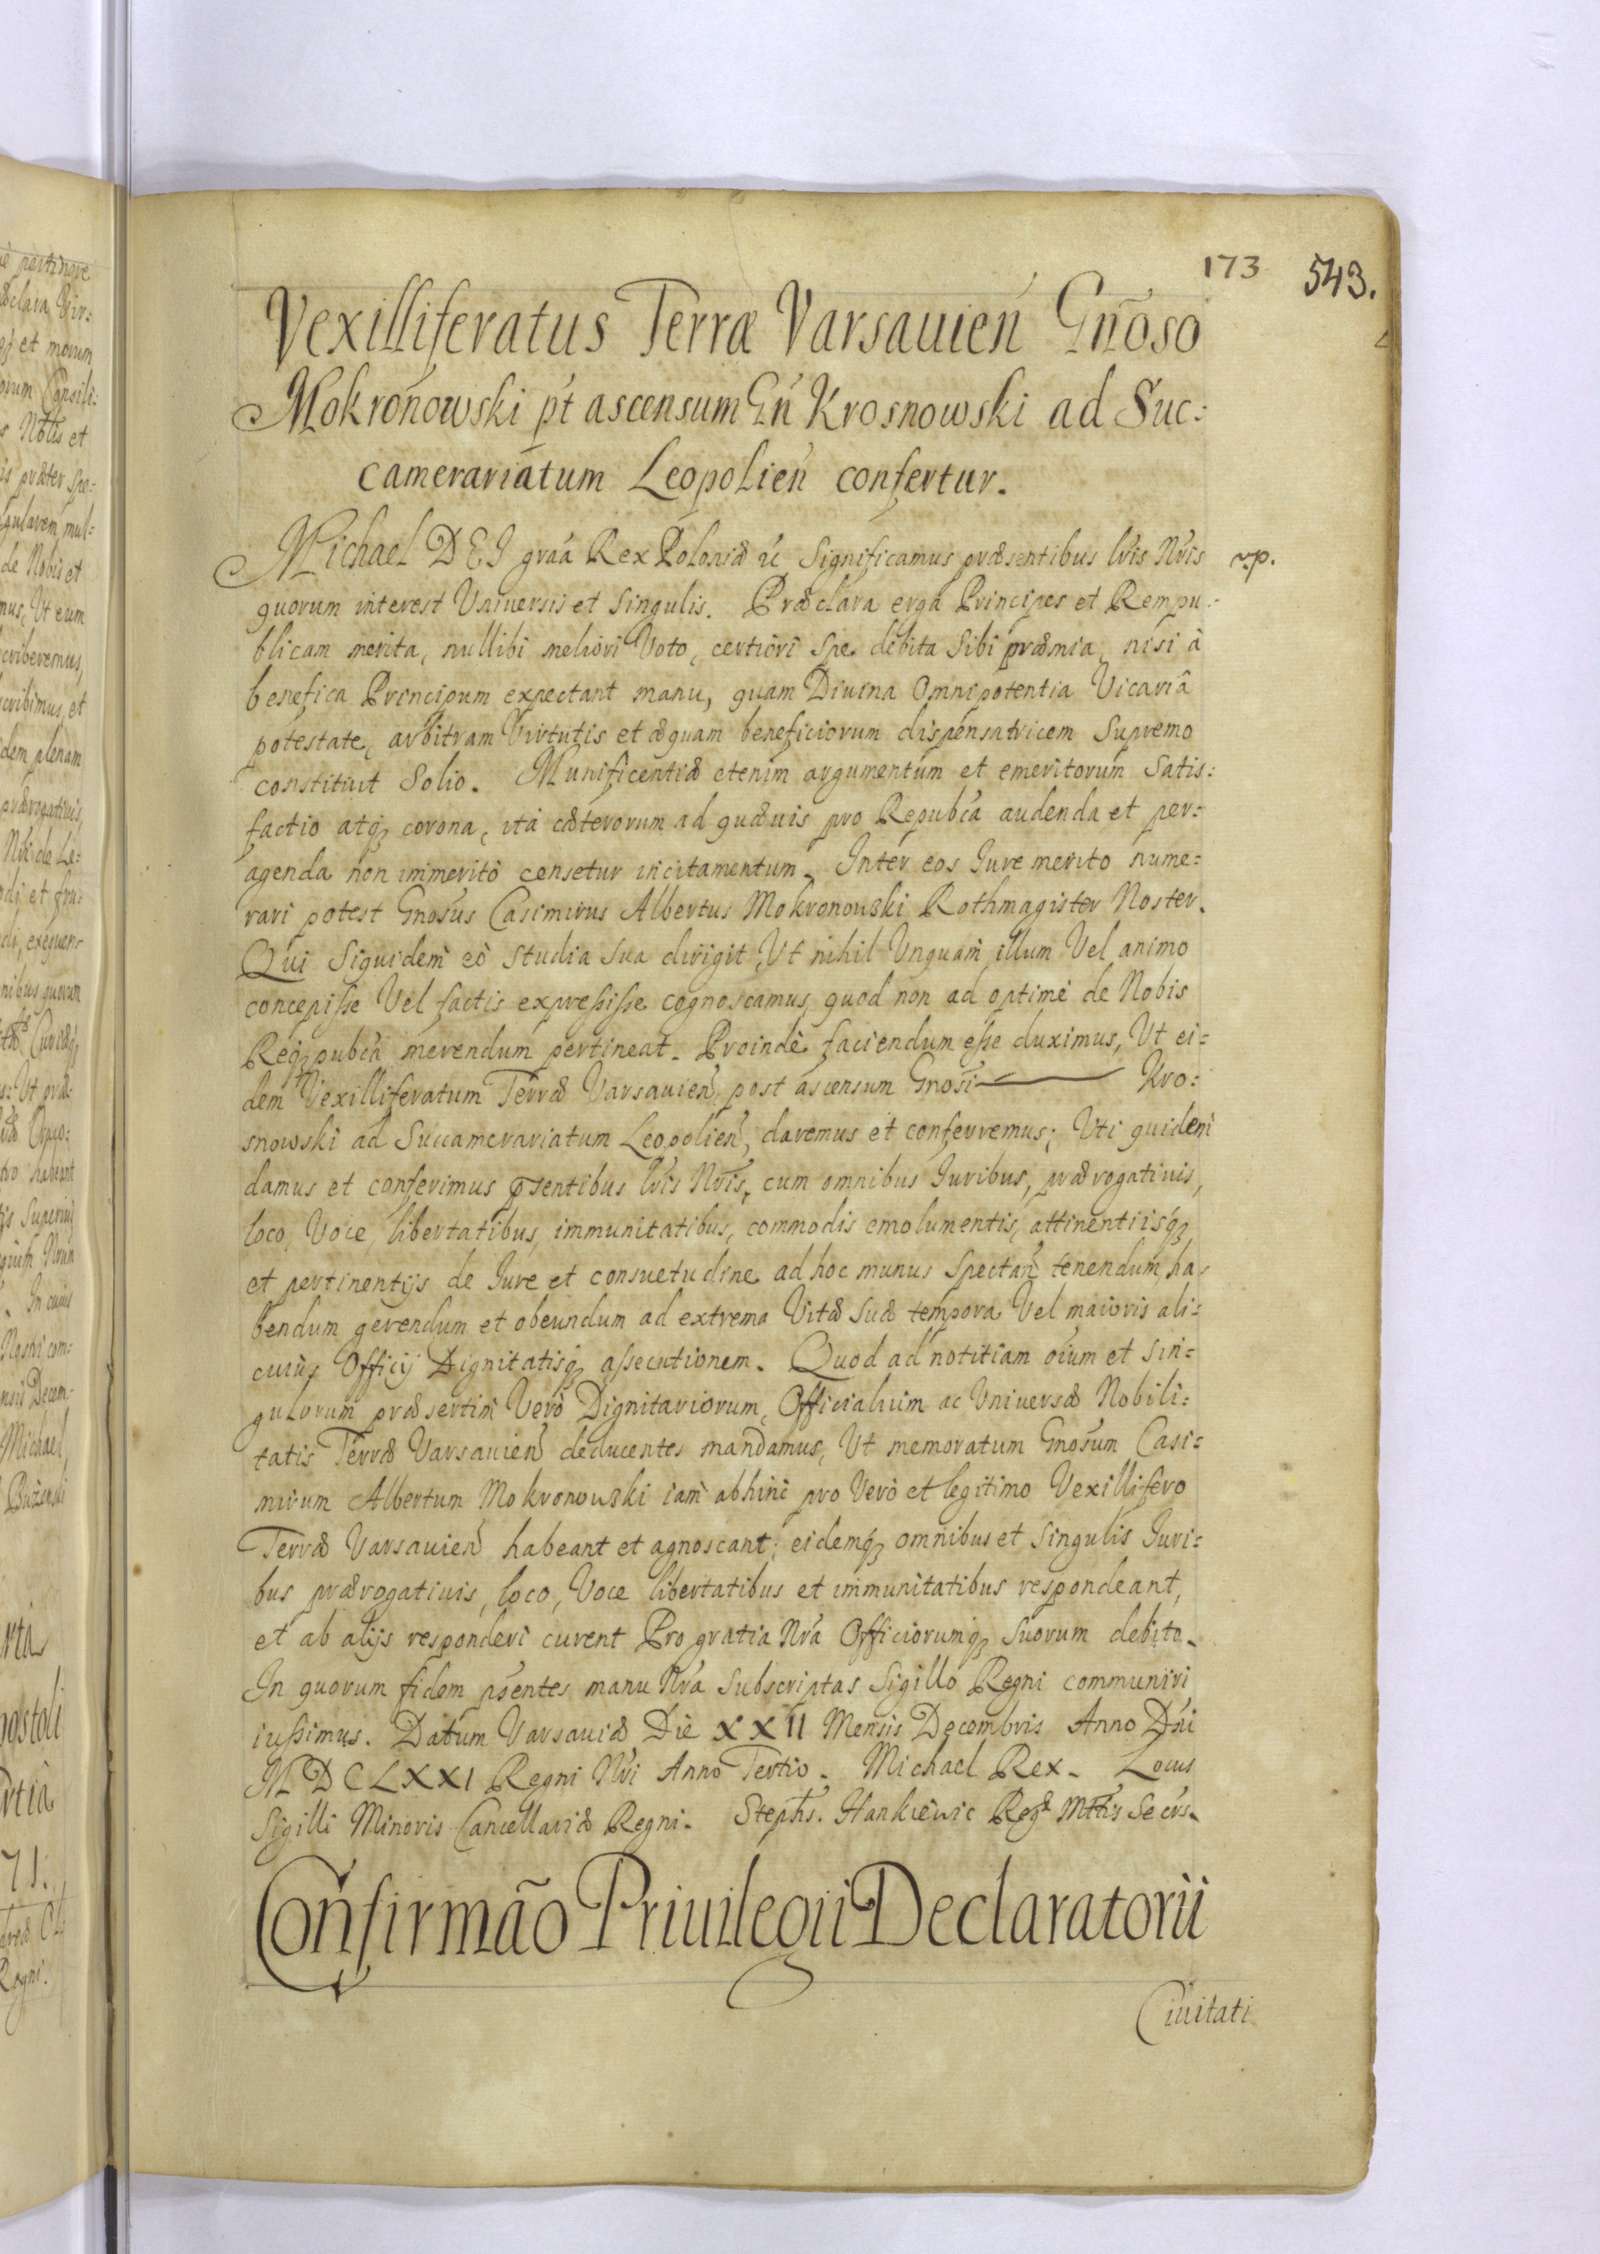 173 543.
Vexilliferatus Terræ Varsauień Gñoso
Mokronowski pt ascensum Gn Krosnowski ad Suc:
camerariatum Leopolień confertur.
Michael DEI graã Rex Poloniæ &c Significamus præsentibus lris Nris vp.
quorum interest Universis et singulis. Præclara erga Principes et Rempu:
blicam merita, nullibi meliori Voto, certiori spe debita sibi præmia, nisi à
benefica Principum expectant manu, quam Diuina Omnipotentia Vicariâ
potestate, arbitram Virtutis et æquam beneficiorum dispensatricem Supremo
constituit Solio. Munificentiæ etenim argumentum et emeritorum Satis:
factio atq3 corona, ita cæterorum ad quæuis pro Repubca audenda et per:
agenda non immeritò censetur incitamentum. Inter eos Iure merito nume:
rari potest Gnosus Casimirus Albertus Mokronowski Rothmagister Noster.
Qui Siquidem eò studia sua dirigit, Vt nihil Vnquam illum Vel animo
concepiſse Vel factis expreſsiſse cognoscamus, quod non ad optimè de Nobis
Req3pubca merendum pertineat. Proinde faciendum eſse duximus, Vt ei:
dem Vexilliferatum Terræ Varsauień post ascensum Gnosi — Kro:
snowski ad Succamerariatum Leopolień, daremus et conferremus; Vti quidem
damus et conferimus psentibus lris Nris, cum omnibus Iuribus, prærogatiuis,
loco, Voce, libertatibus, immunitatibus, commodis emolumentis, attinentiisq3
et pertinentijs de Iure et consuetudine ad hoc munus Spectań tenendum, ha:
bendum gerendum et obeundum ad extrema Vitæ suæ tempora Vel maioris ali:
cuius Officij Dignitatisq3 aſsecutionem. Quod ad notitiam oium et sin:
gulorum præsertim Verò Dignitariorum, Officialium ac Vniversæ Nobili:
tatis Terræ Varsauień deducentes mandamus, Vt memoratum Gnosum Casi:
mirum Albertum Mokronowski iam abhinc pro Vero et legitimo Vexillifero
Terræ Varsauień habeant et agnoscant, eidemq3 omnibus et singulis Iuri:
bus prærogatiuis, loco, Voce libertatibus et immunitatibus respondeant,
et ab alijs responderi curent Pro gratia Nra Officiorumq3 suorum debito.
In quorum fidem psentes manu Nra subscriptas Sigillo Regni communiri
iuſsimus. Datum Varsauiæ Die XXII Mensis Decembris Anno Dni
MDCLXXI Regni Nri Anno Tertio. Michael Rex. Locus
Sigilli Minoris Cancellariæ Regni. Stephs. Hankiewic Regæ Mttis Secrs.
Confirmão Priuilegii Declaratorii
Ciuitati